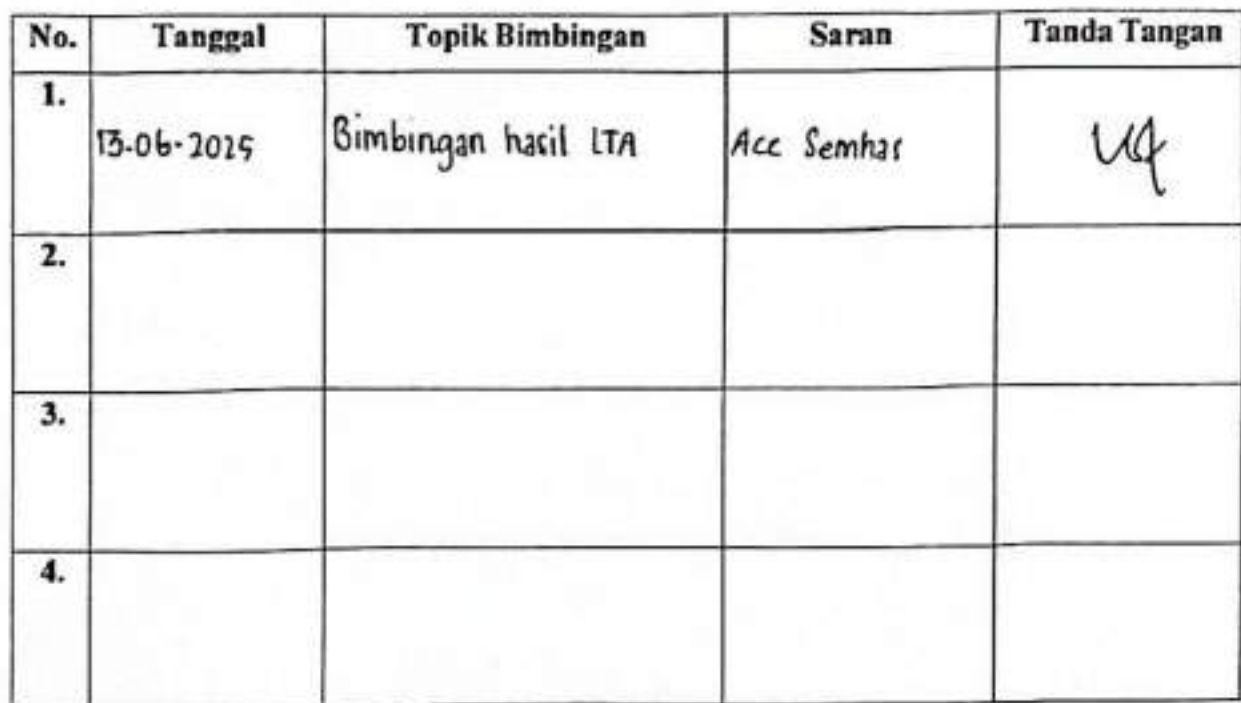 No. Tanggal Topik Bimbingan Saran Tanda Tangan
1.
13-06-2025 Bimbingan hasil LTA Acc Semhas
2.
3.
4.